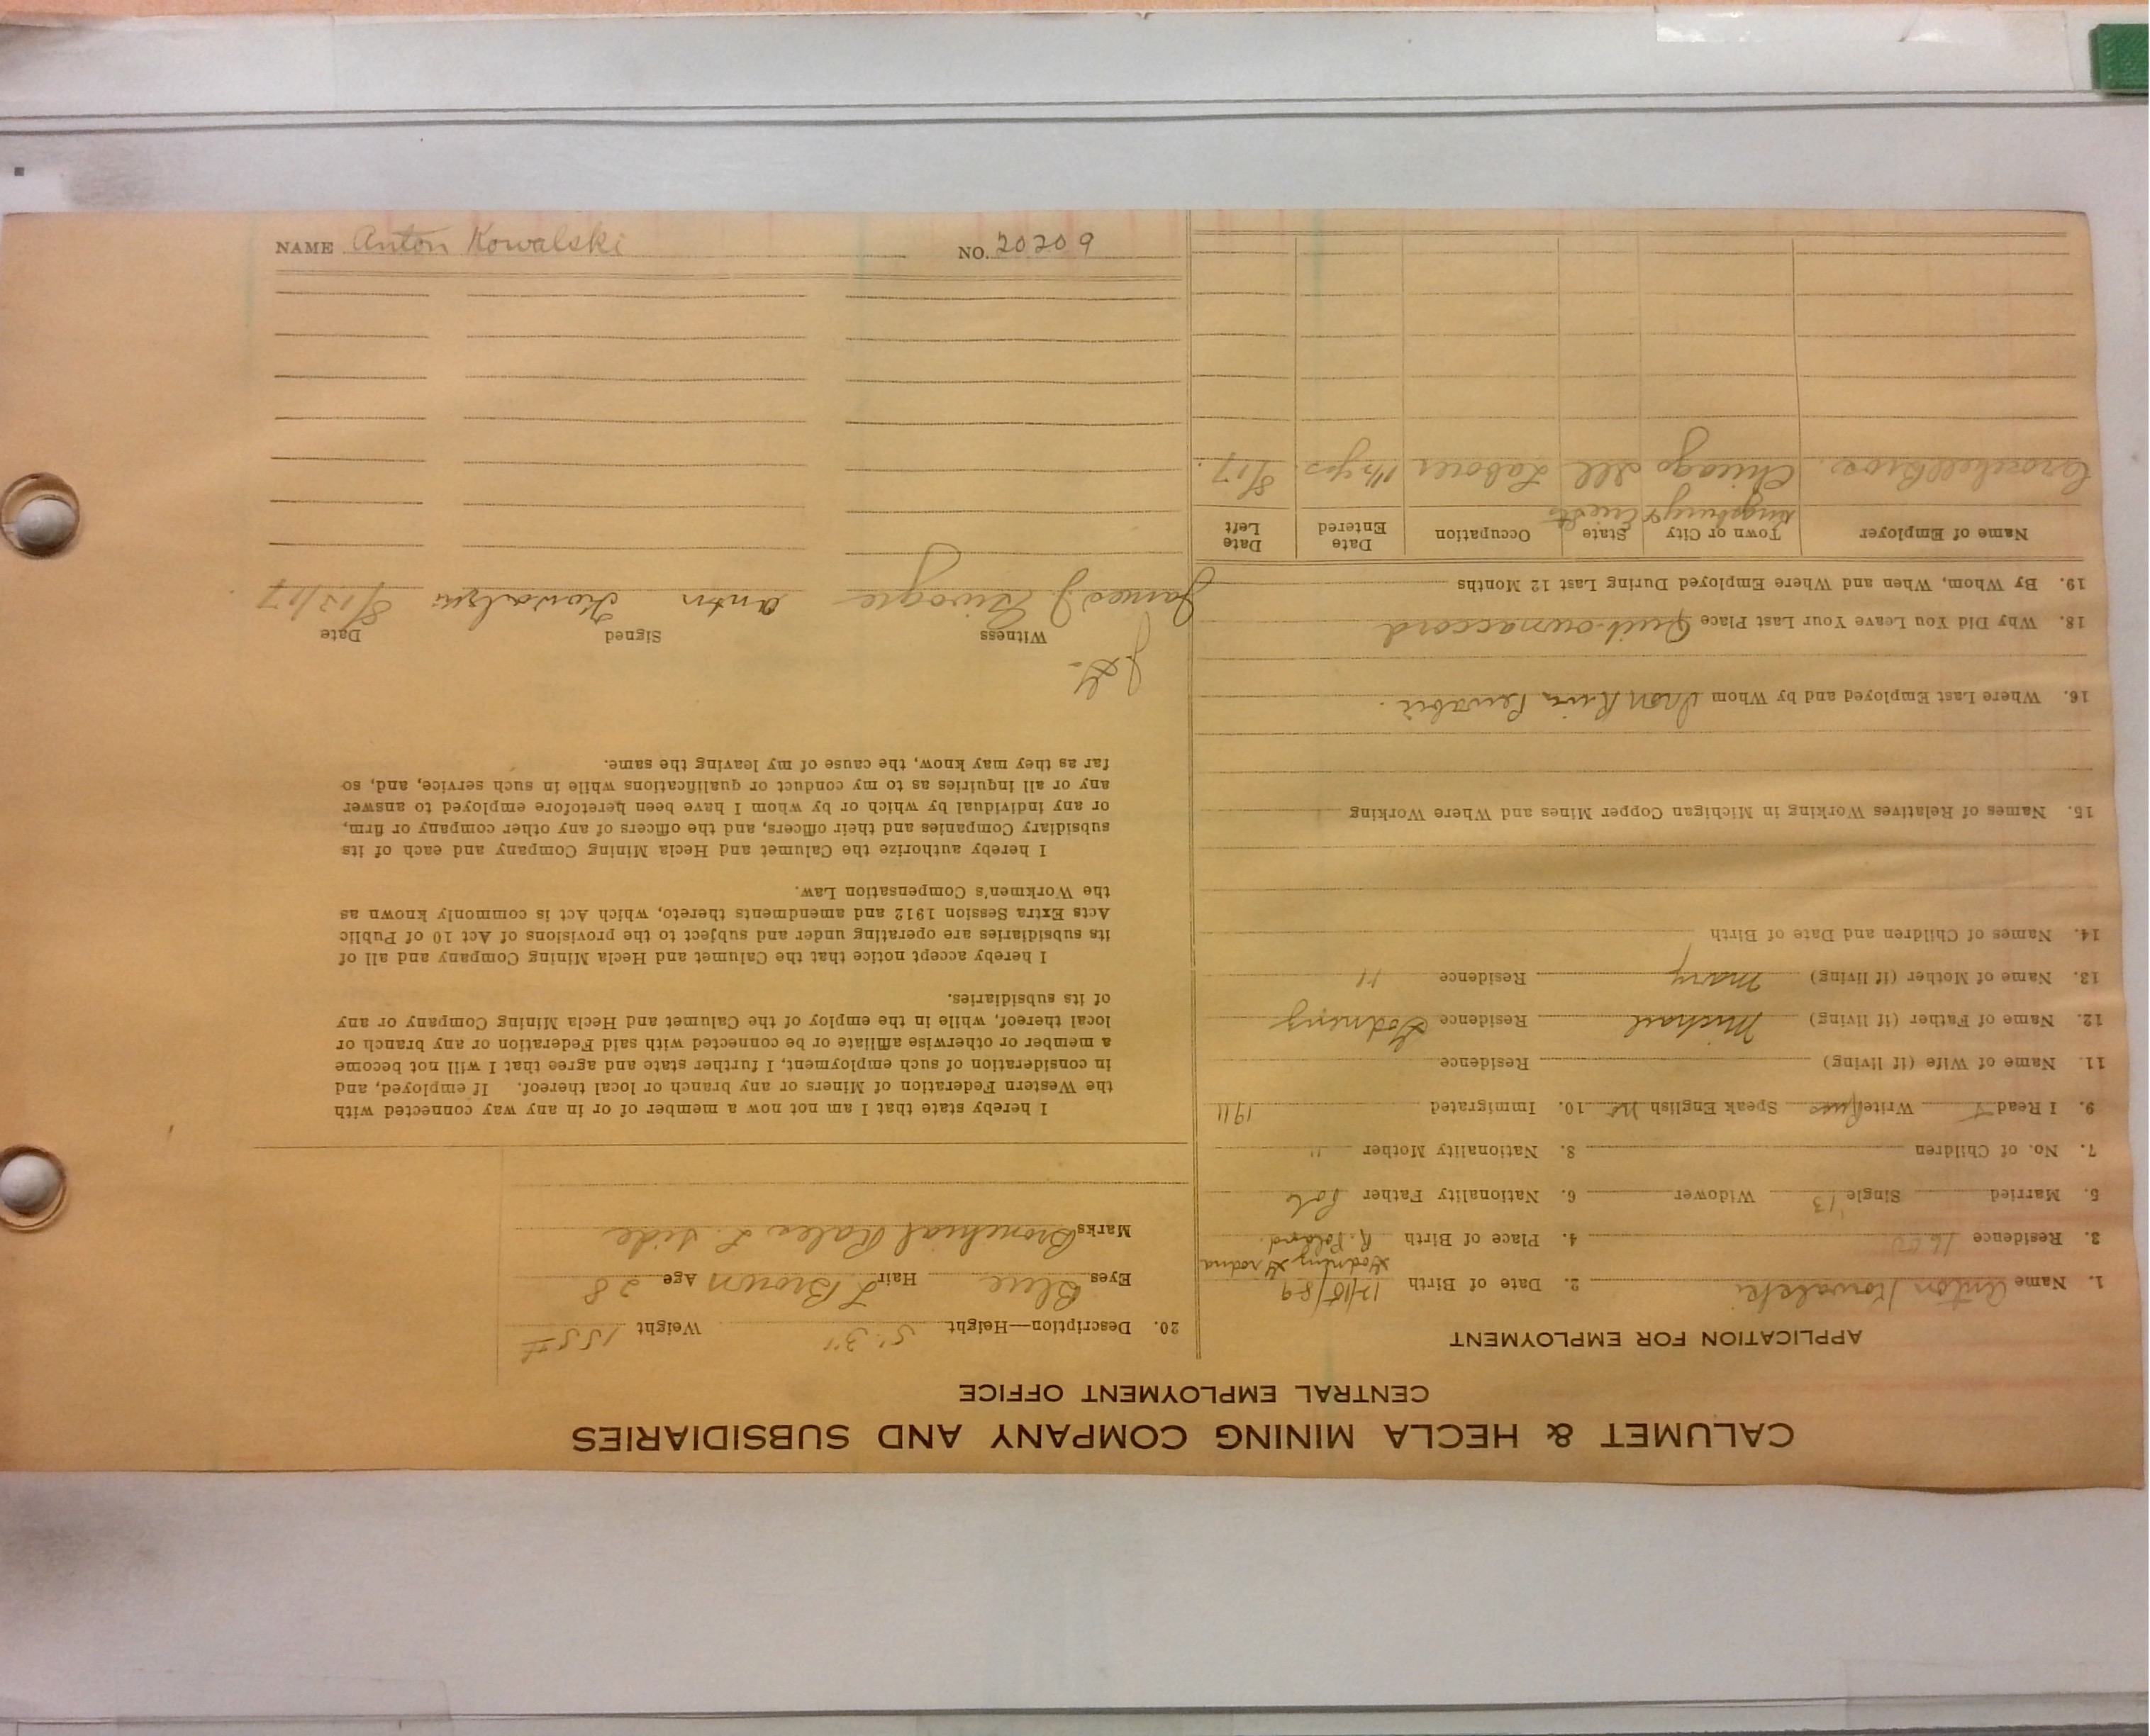 CALUMET & HECLA MINING COMPANY AND SUBSIDIARIES
CENTRAL EMPLOYMENT OFFICE
APPLICATION FOR EMPLOYMENT
1. Name Anton Kowalski 2. Date of Birth 12/18/89
3. Residence 4. Place of Birth R. Poland.
5. Married Single 13 Widower 6. Nationality Father Pole
7. No. of Children 8. Nationality Mother "
9. I Read Write yes Speak English no 10. Immigrated 1911
11. Name of Wife (if living) Residence
12. Name of Father (if living) Michael Residence
13. Name of Mother (if living) Mary Residence 11
14. Names of Children and Date of Birth
15. Names of Relatives Working in Michigan Copper Mines and Where Working
16. Where Last Employed and by Whom Iron River
18. Why Did You Leave Your Last Place Quit-own accord
19. By Whom, When and Where Employed During Last 12 Months
Name of Employer Town or City State Occupation Date Entered Date Left
Bros. Chicago Ill Laborer 1½ yrs. 8/17.
20. Description—Height 5' 3" Weight 155#
Eyes Blue Hair L Brown Age 28
Marks Bronchial Rales L. side
I hereby state that I am not now a member of or in any way connected with
the Western Federation of Miners or any branch or local thereof. If employed, and
in consideration of such employment, I further state and agree that I will not become
a member or otherwise affiliate or be connected with said Federation or any branch or
local thereof, while in the employ of the Calumet and Hecla Mining Company or any
of its subsidiaries.
I hereby accept notice that the Calumet and Hecla Mining Company and all of
its subsidiaries are operating under and subject to the provisions of Act 10 of Public
Acts Extra Session 1912 and amendments thereto, which Act is commonly known as
the Workmen's Compensation Law.
I hereby authorize the Calumet and Hecla Mining Company and each of its
subsidiary Companies and their officers, and the officers of any other company or firm,
or any individual by which or by whom I have been heretofore employed to answer
any or all inquiries as to my conduct or qualifications while in such service, and, so
far as they may know, the cause of my leaving the same.
Witness Signed Date
James J. Anton Kowalski 8/13/17
NAME Anton Kowalski NO. 20209